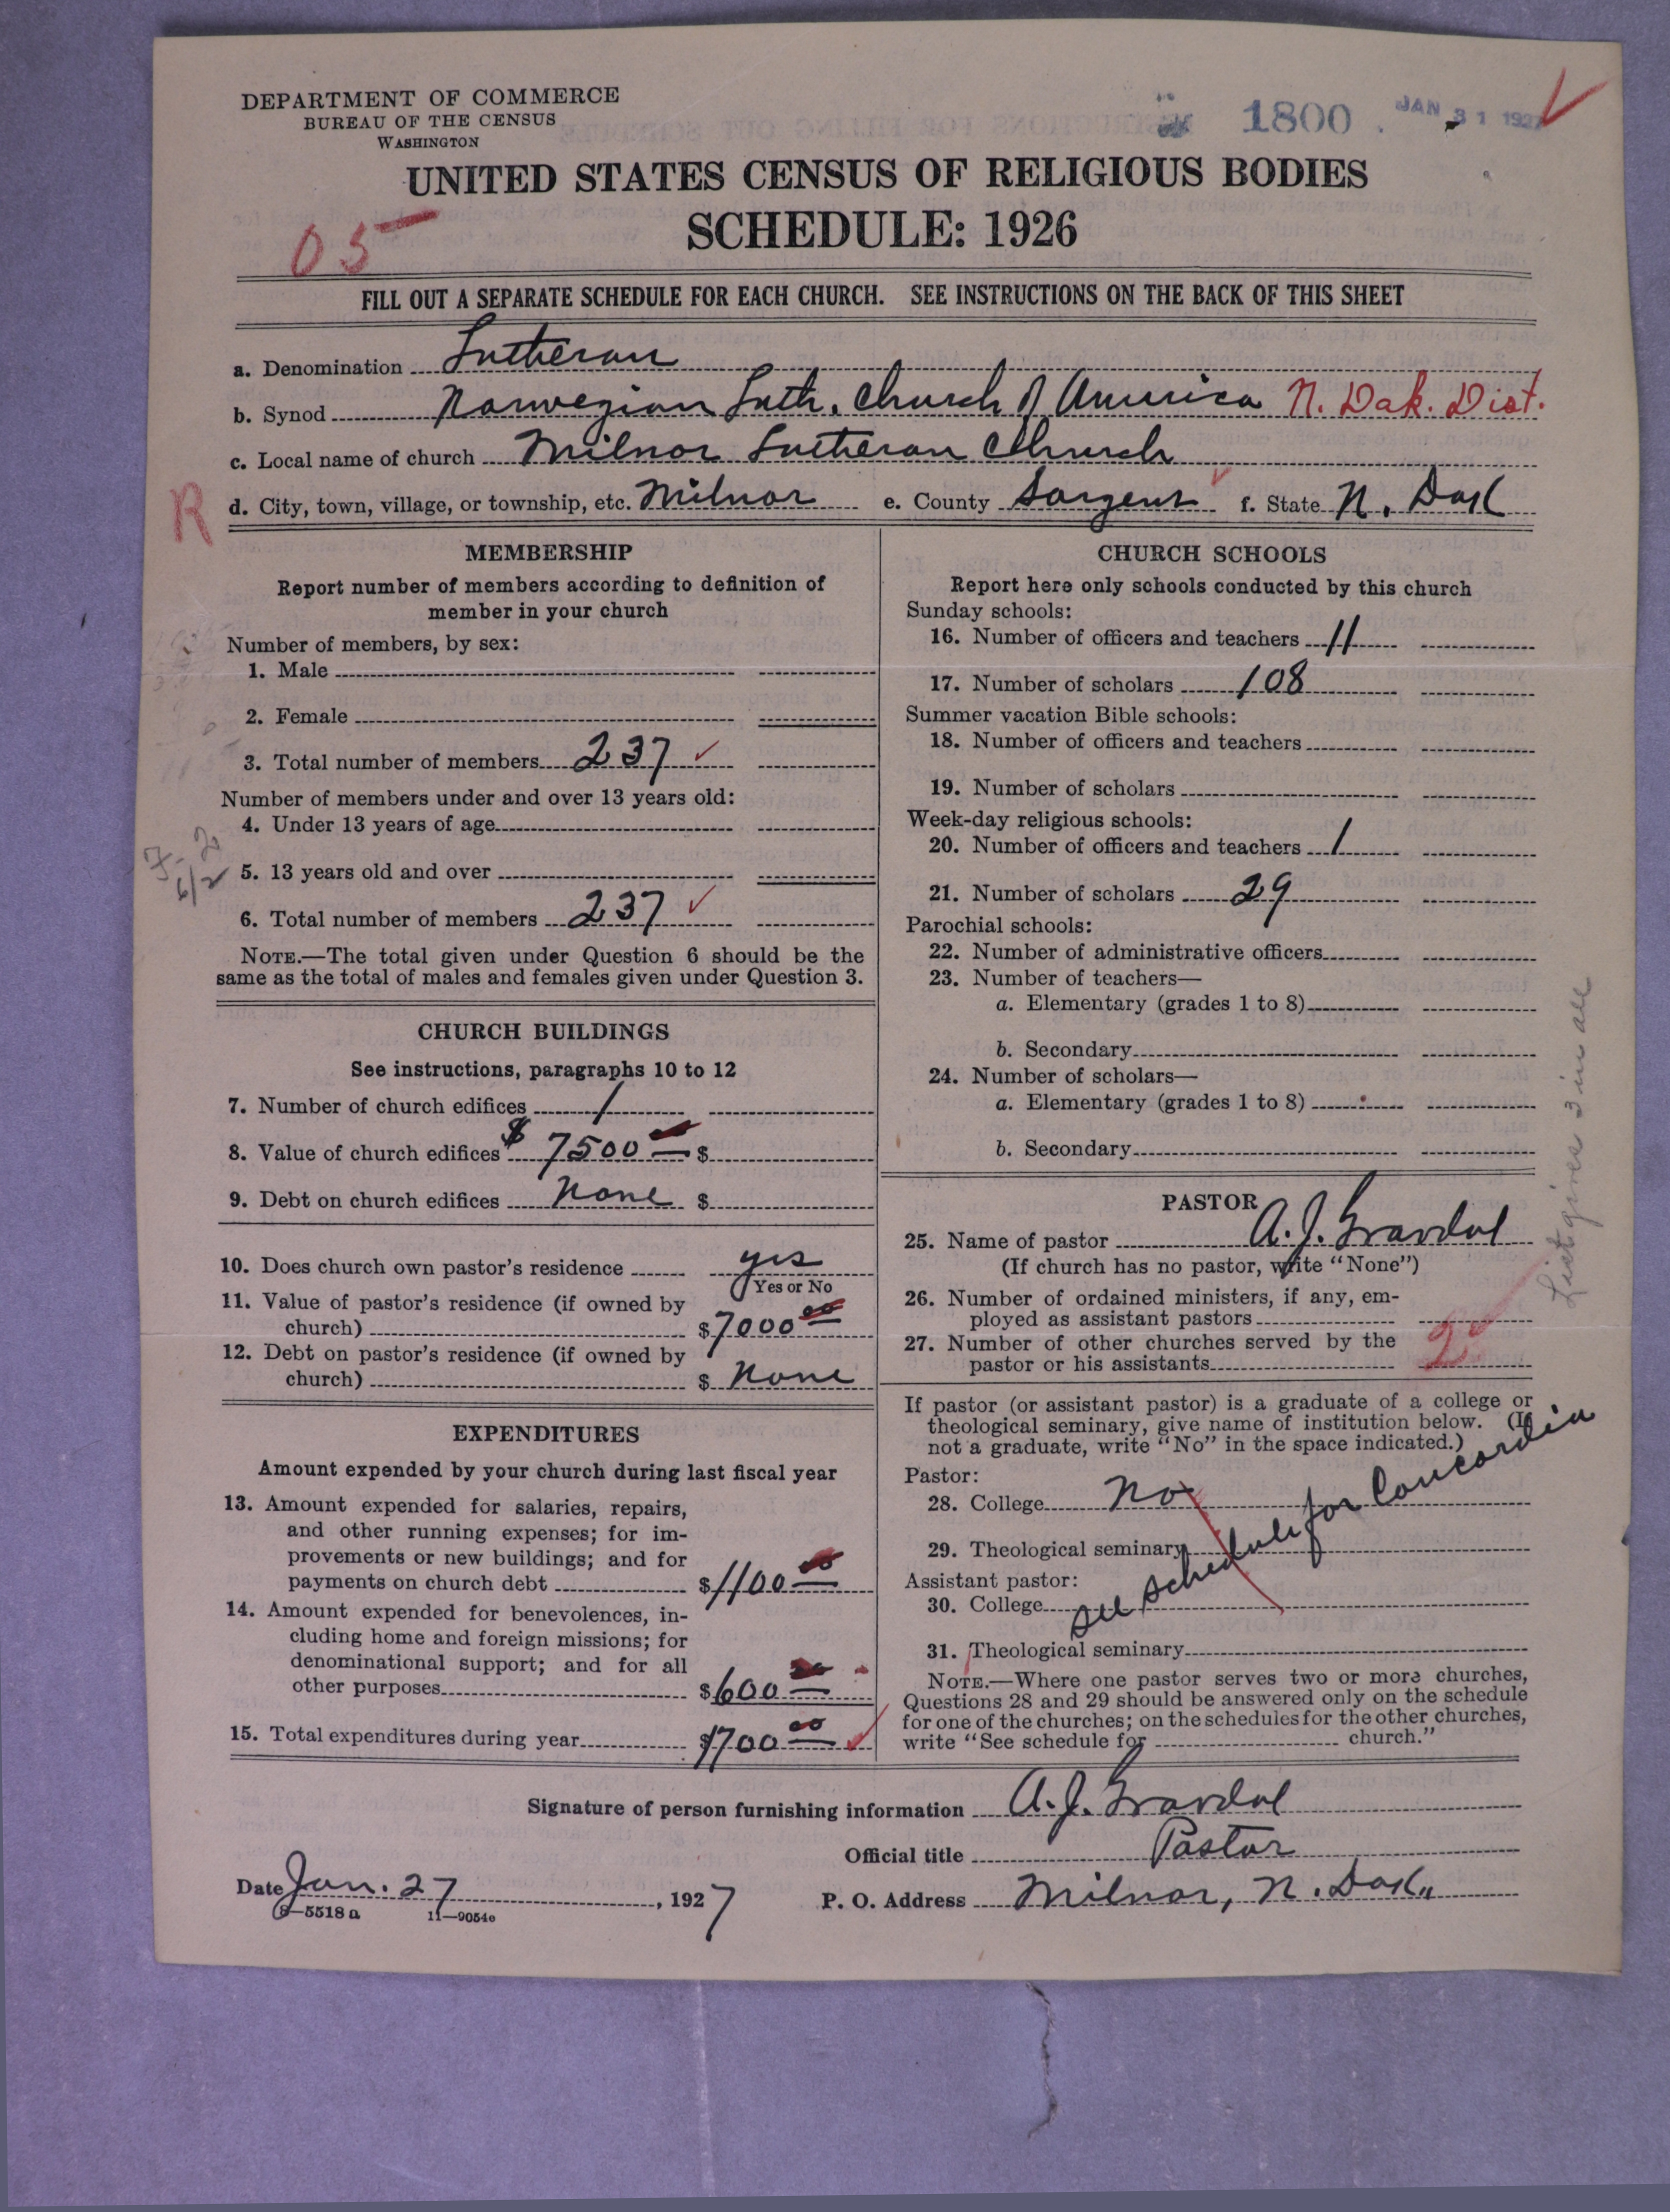 DEPARTMENT OF COMMERCE
BUREAU OF THE CENSUS
WASHINGTON
1800
JAN 31 1927
UNITED STATES CENSUS OF RELIGIOUS BODIES
SCHEDULE: 1926
05
FILL OUT A SEPARATE SCHEDULE FOR EACH CHURCH. SEE INSTRUCTIONS ON THE BACK OF THIS SHEET
a. Denomination Lutheran
b. Synod Norwegian Luth. Church of America N. Dak. Dist.
c. Local name of church Milnor Lutheran Church
R
d. City, town, village, or township, etc. Milnor e. County Sargent f. State N. Dak
MEMBERSHIP
Report number of members according to definition of
member in your church
Number of members, by sex:
1. Male
2. Female
3. Total number of members 237
Number of members under and over 13 years old:
4. Under 13 years of age
5. 13 years old and over
6. Total number of members 237
NOTE.—The total given under Question 6 should be the
same as the total of males and females given under Question 3.
CHURCH BUILDINGS
See instructions, paragraphs 10 to 12
7. Number of church edifices 1
8. Value of church edifices $ 7500 00 $
9. Debt on church edifices None $
10. Does church own pastor's residence yes
Yes or No
11. Value of pastor's residence (if owned by
church) $ 7000 00
12. Debt on pastor's residence (if owned by
church) $ None
EXPENDITURES
Amount expended by your church during last fiscal year
13. Amount expended for salaries, repairs,
and other running expenses; for im-
provements or new buildings; and for
payments on church debt $ 1100 00
14. Amount expended for benevolences, in-
cluding home and foreign missions; for
denominational support; and for all
other purposes $ 600 00
15. Total expenditures during year $ 1700 00
CHURCH SCHOOLS
Report here only schools conducted by this church
Sunday schools:
16. Number of officers and teachers 11
17. Number of scholars 108
Summer vacation Bible schools:
18. Number of officers and teachers
19. Number of scholars
Week-day religious schools:
20. Number of officers and teachers 1
21. Number of scholars 29
Parochial schools:
22. Number of administrative officers
23. Number of teachers—
a. Elementary (grades 1 to 8)
b. Secondary
24. Number of scholars—
a. Elementary (grades 1 to 8)
b. Secondary
List gives 3 in all
PASTOR
25. Name of pastor A. J. Gravdal
(If church has no pastor, write "None")
26. Number of ordained ministers, if any, em-
ployed as assistant pastors
27. Number of other churches served by the
pastor or his assistants 2
If pastor (or assistant pastor) is a graduate of a college or
theological seminary, give name of institution below. (If
not a graduate, write "No" in the space indicated.)
Pastor:
28. College No
29. Theological seminary
See schedule for Concordia
Assistant pastor:
30. College
31. Theological seminary
NOTE.—Where one pastor serves two or more churches,
Questions 28 and 29 should be answered only on the schedule
for one of the churches; on the schedules for the other churches,
write "See schedule for church."
Signature of person furnishing information A. J. Gravdal
Official title Pastor
Date Jan. 27, 1927 P. O. Address Milnor, N. Dak.
8—5518 a 11—9054e